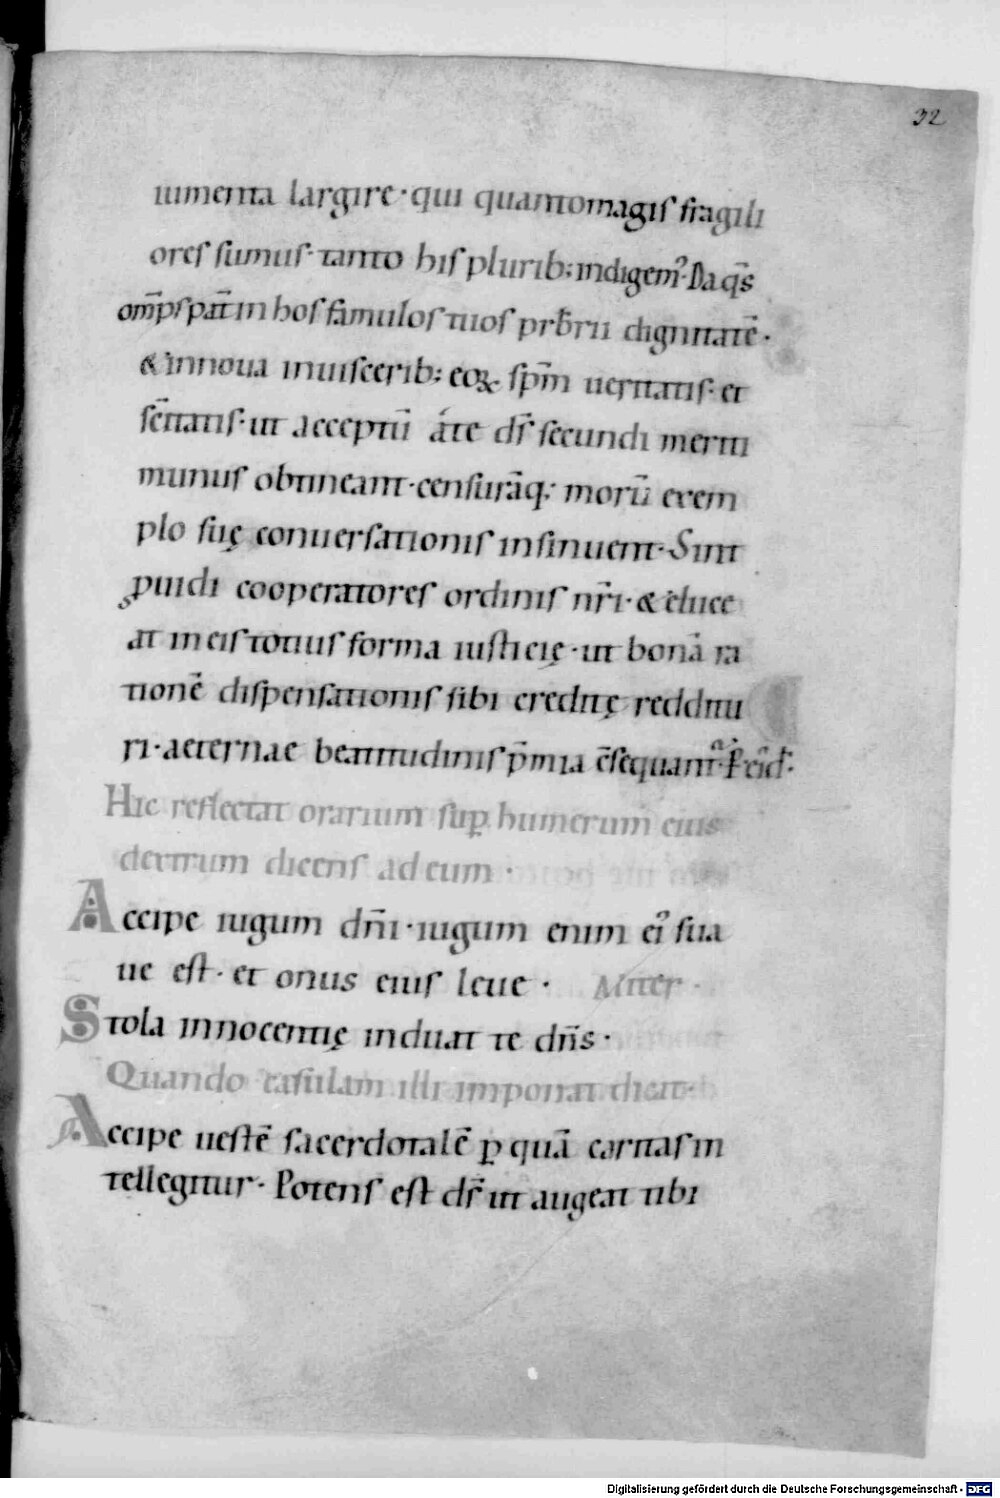 32
iumenta largire · qui quantomagis fragili
ores sumus · tanto his plurib; indigem᾽· Da qs̄
om̄ps pat̄ in hos famulos tuos prb̄rii dignitatē ·
& innoua inuiscerib; eoꝝ sp̄m ueritatis · et
sc̄itatis · ut acceptū a te ds̄ secundi meriti
munus obtineant · censurāq; morū exem
plo suę conuersationis insinuent · Sint
puidi cooperatores ordinis nr̄i · & eluce
at in eis totius forma iusticię · ut bonā ra
tionē dispensationis sibi creditę reddituri
ri · aeternae beatitudinis p̄mia c̄sequant᾽·
Hic reflectat orarium sup humerum eius
dextrum dicens ad eum ·
Accipe iugum dn̄i · iugum enim ei᾽ sua
ue est · et onus eius leue · Aliter ·
Stola innocentię induat te dn̄s ·
Quando casulam illi imponat dicat ·
Accipe uestē sacerdotalē ꝑ quā caritas in
tellegitur · Potens est ds̄ ut augeat tibi
Digitalisierung gefördert durch die Deutsche Forschungsgemeinschaft - DFG